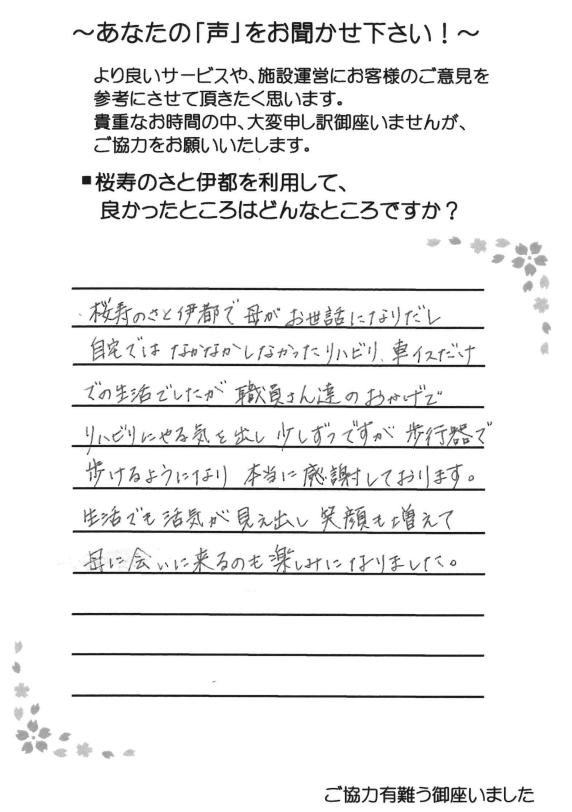 ～あなたの「声」をお聞かせ下さい！～
より良いサービスや、施設運営にお客様のご意見を
参考にさせて頂きたく思います。
貴重なお時間の中、大変申し訳御座いませんが、
ご協力をお願いいたします。
■桜寿のさと伊都を利用して、
良かったところはどんなところですか？
桜寿のさと伊都で母がお世話になりだし
自宅ではなかなかしなかったリハビリ、車イスだけ
での生活でしたが職員さん達のおかげで
リハビリにやる気を出し少しずつですが歩行器で
歩けるようになり本当に感謝しております。
生活でも活気が見え出し笑顔も増えて
母に会いに来るのも楽しみになりました。
ご協力有難う御座いました